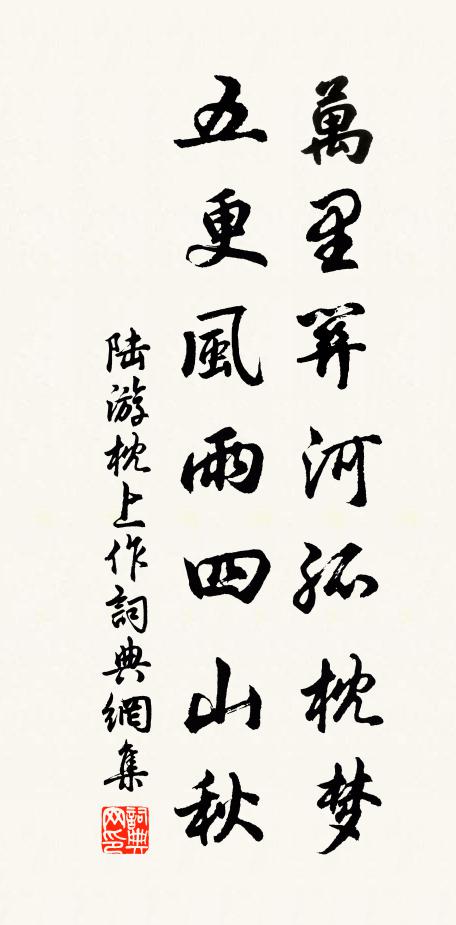 萬里關河孤枕梦
五更風雨四山秋
陸游枕上作詞典網集
詞典网印